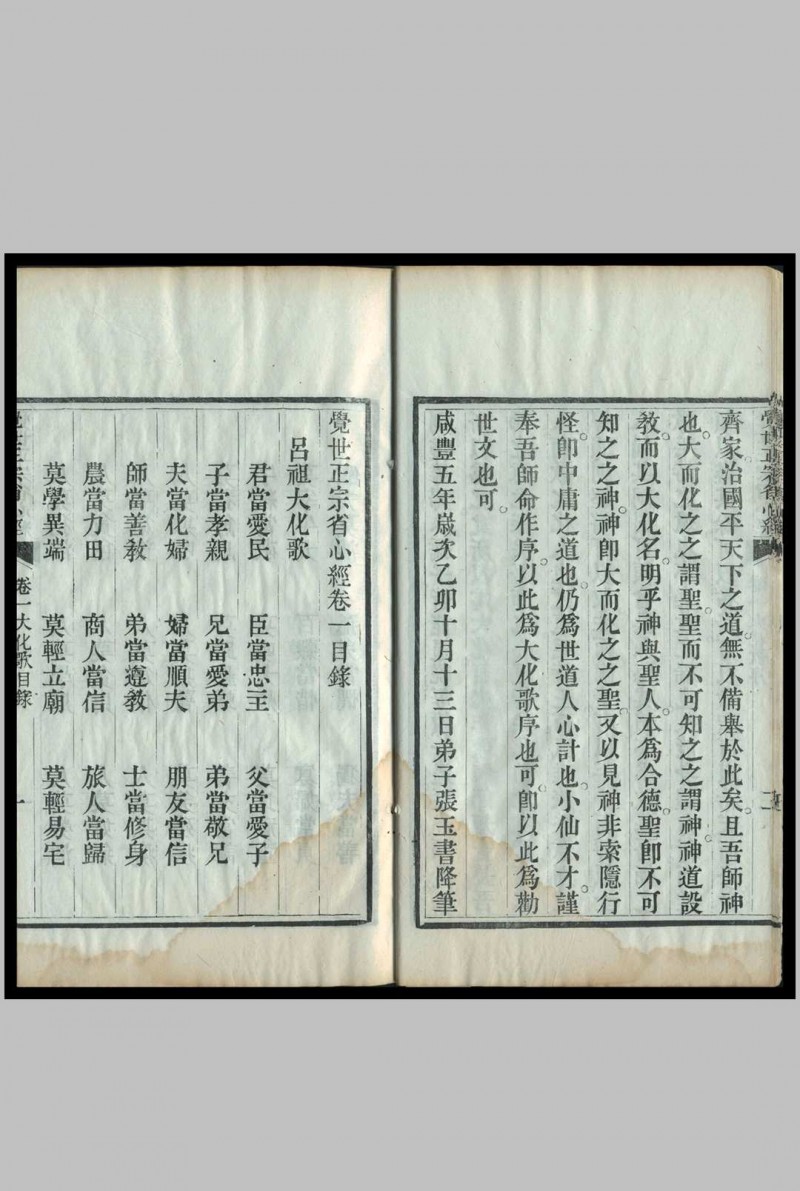 覺世正宗省心經
齊家治國平天下之道。無不備舉於此矣。且吾師神
也。大而化之之謂聖。聖而不可知之之謂神。神道設
教。而以大化名。明乎神與聖人。本爲合德。聖卽不可
知之之神。神卽大而化之之聖。又以見神非索隱行
怪。卽中庸之道也。仍爲世道人心計也。小仙不才。謹
奉吾師命作序。以此爲大化歌序也可。卽以此爲勸
世文也可。
咸豐五年嵗次乙卯十月十三日弟子張玉書降筆
覺世正宗省心經卷一目錄
呂祖大化歌
君當愛民 臣當忠王 父當愛子
子當孝親 兄當愛弟 弟當敬兄
夫當化婦 婦當順夫 朋友當信
師當善教 弟當遵教 士當修身
農當力田 商人當信 旅人當歸
莫學異端 莫輕立廟 莫輕易宅
覺世正宗省心經 卷一大化歌目錄 一